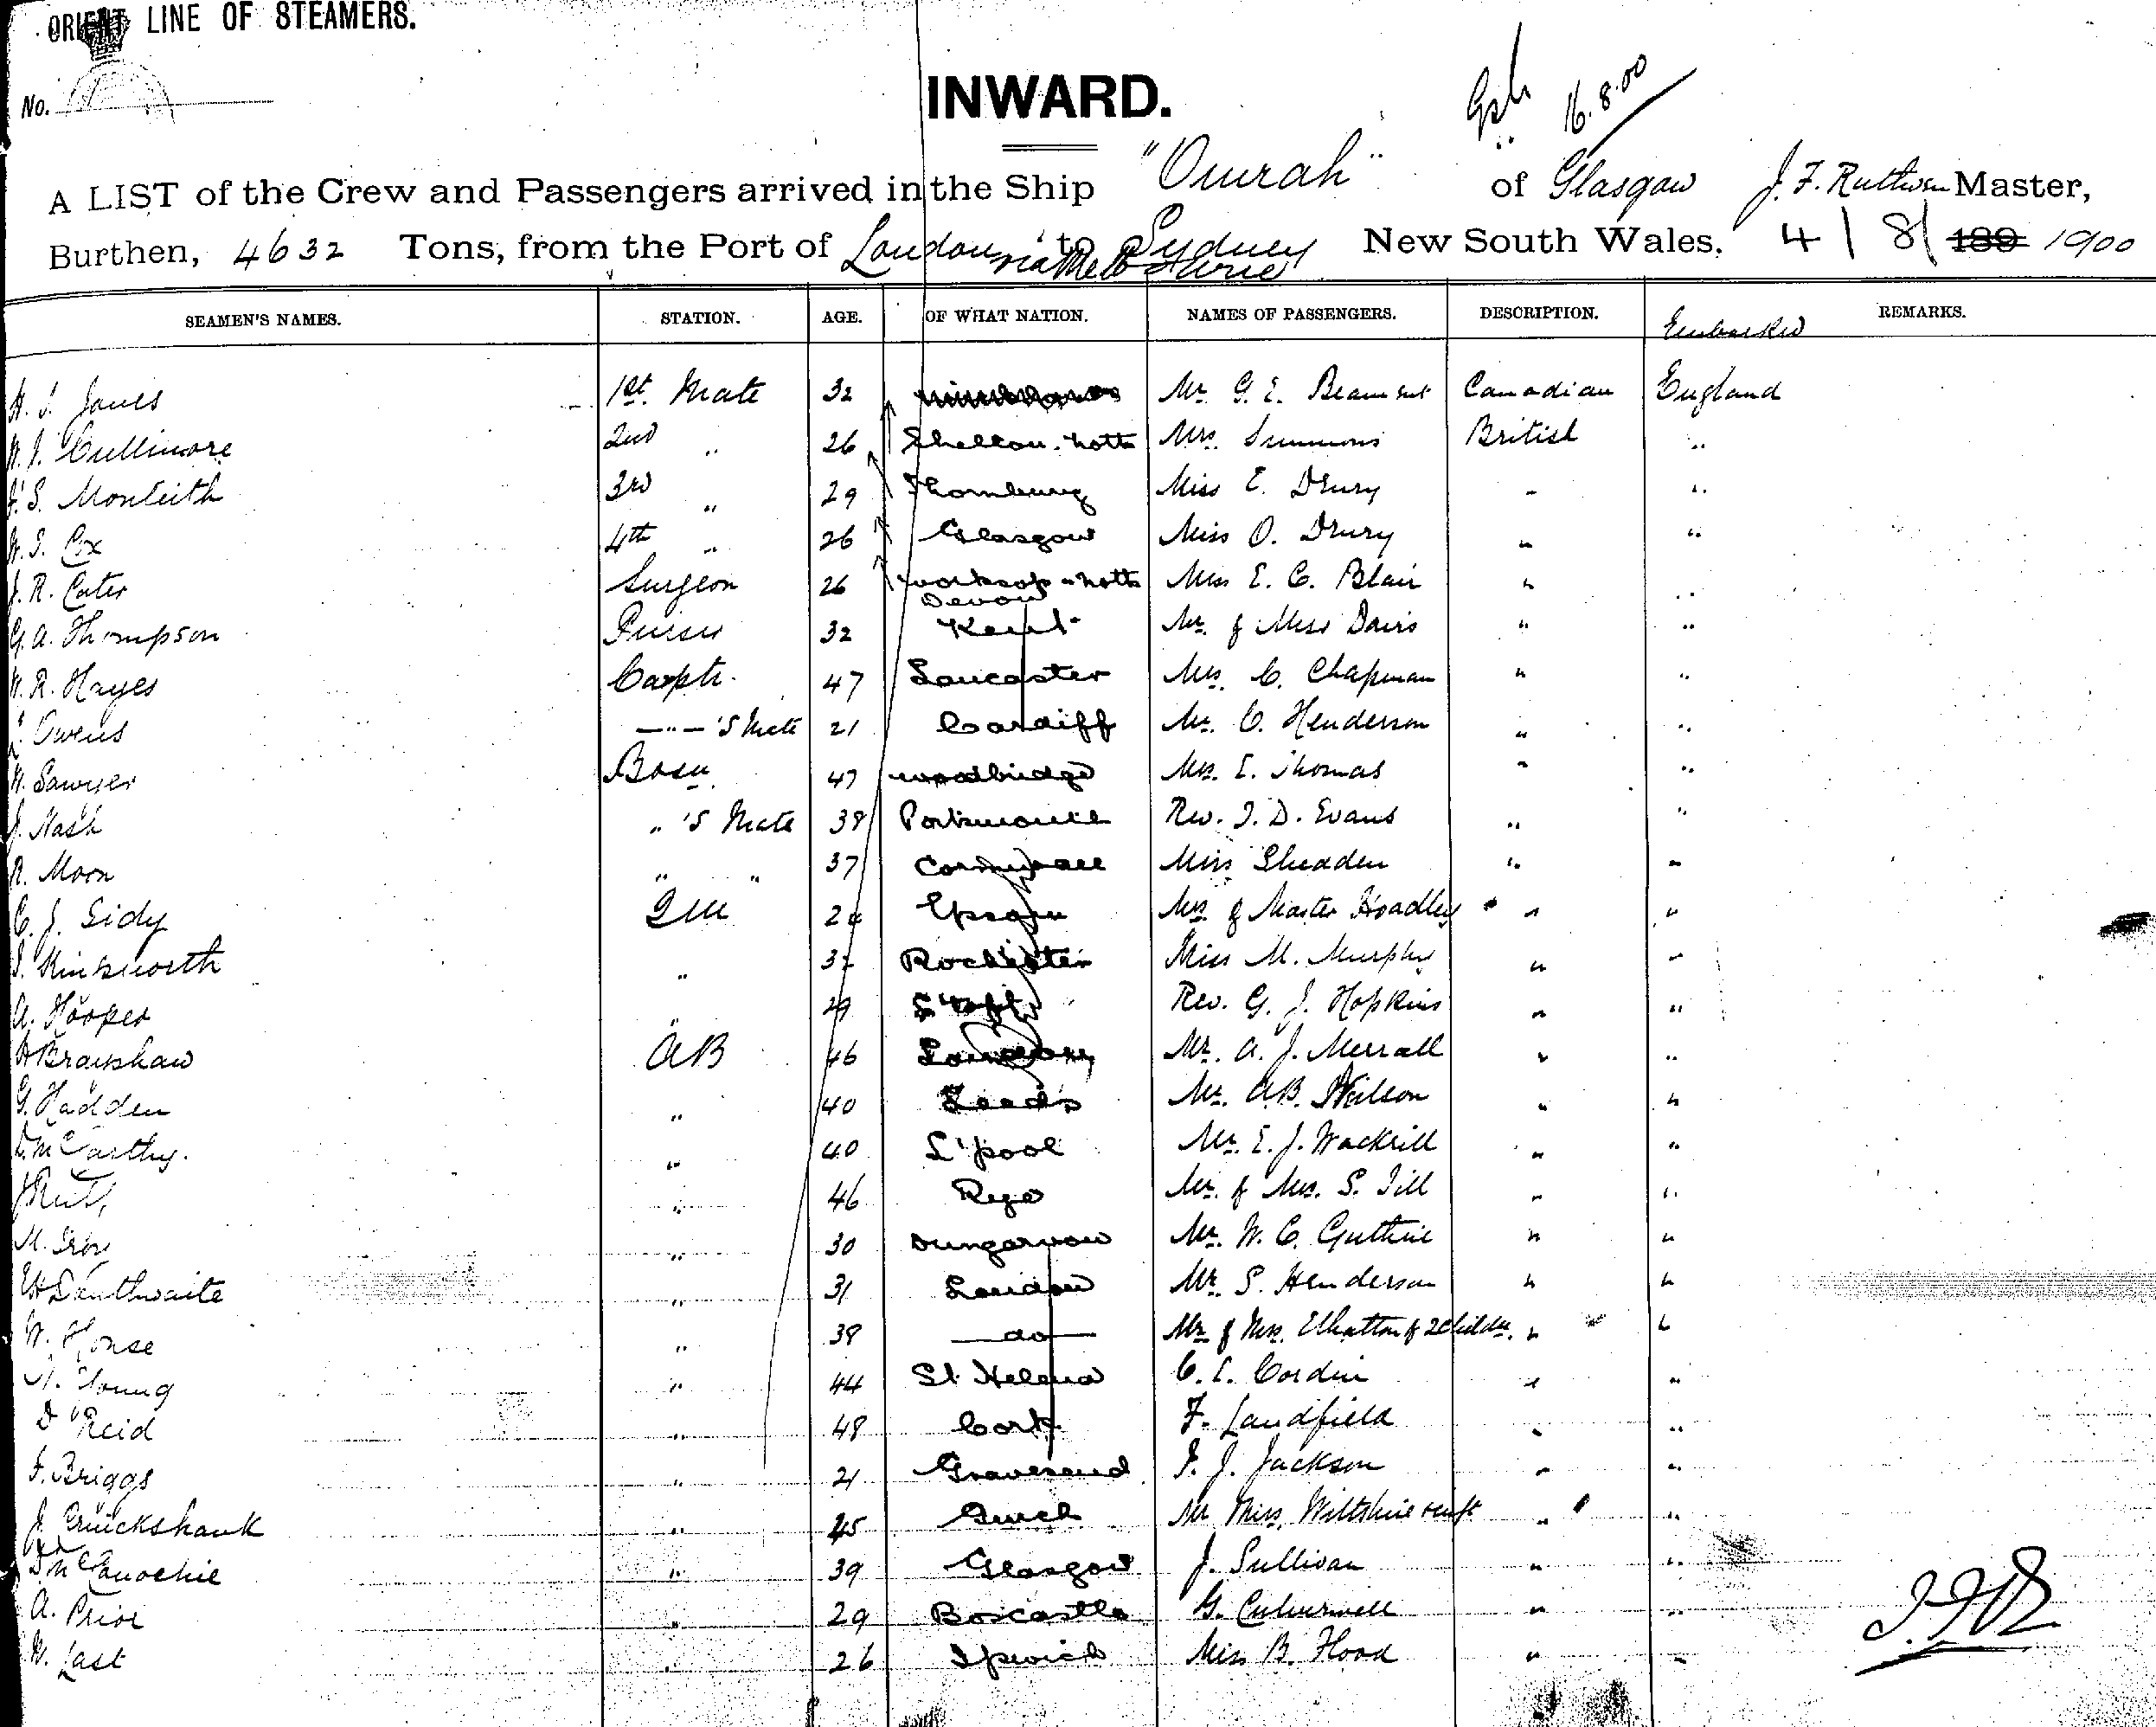 ORIENT LINE OF STEAMERS.
No.
INWARD.
16.8.00
A LIST of the Crew and Passengers arrived in the Ship "Omrah" of Glasgow J. F. Ruthven Master,
Burthen, 4632 Tons, from the Port of London via Melbourne to Sydney New South Wales, 4/8/ 189 1900
SEAMEN'S NAMES. STATION. AGE. OF WHAT NATION. NAMES OF PASSENGERS. DESCRIPTION. Embarked REMARKS.
Jones 1st. Mate 32 Mr. G. E. Beaumont Canadian England
Cullimore 2nd " 26 Shelton. Notts Mrs. Simmons British "
S. Monteith 3rd " 29 Thornbury Miss E. Drury " "
Cox 4th " 26 Glasgow Miss O. Drury " "
J. R. Cater Surgeon 26 Worksop - Notts Miss E. C. Blair " "
Devon
G. A. Thompson Purser 32 Kent Mr. & Miss Davis " "
W. R. Hayes Carptr. 47 Lancaster Mrs. C. Chapman " "
Owens —"— 's Mate 21 Cardiff Mr. C. Henderson " "
W. Sawyer Bosn 47 Woodbridge Mrs. E. Thomas " "
J. Nash " 's Mate 38 Portsmouth Rev. T. D. Evans " "
R. Moon " " 37 Cornwall Miss Shedden " "
C. J. Sidy QM Epsom Mrs & Master Hoadley " "
Kinksworth " 32 Rochester Miss M. Murphy " "
A. Hooper " 29 Rev. G. J. Hopkins " "
Brayshaw AB 46 Mr. A. J. Merrall " "
G. Hadden " 40 Leeds Mr. A.B. Wilson " "
McCarthy. " 40 L'pool Mr. E. J. Wackrill " "
" 46 Mr. & Mrs. S. Till " "
M. " 30 Dungarvan Mr. W. C. Guthrie " "
Linthwaite " 31 London Mr. S. Henderson " "
W. House " 38 — do — Mr & Mrs. Whatton & 2 childn. " "
Young " 44 St. Helena C. E. Cordin " "
D Reid " 48 Cork F. Landfield " "
F. Briggs " 21 Gravesend F. J. Jackson " "
J. Cruickshank " 45 Mr Miss Wiltshire " "
McConochie " 39 Glasgow J. Sullivan " "
A. Prior " 29 Boscastle G. Culverwell " "
W. Last " 26 Ipswich Miss B. Hood " "